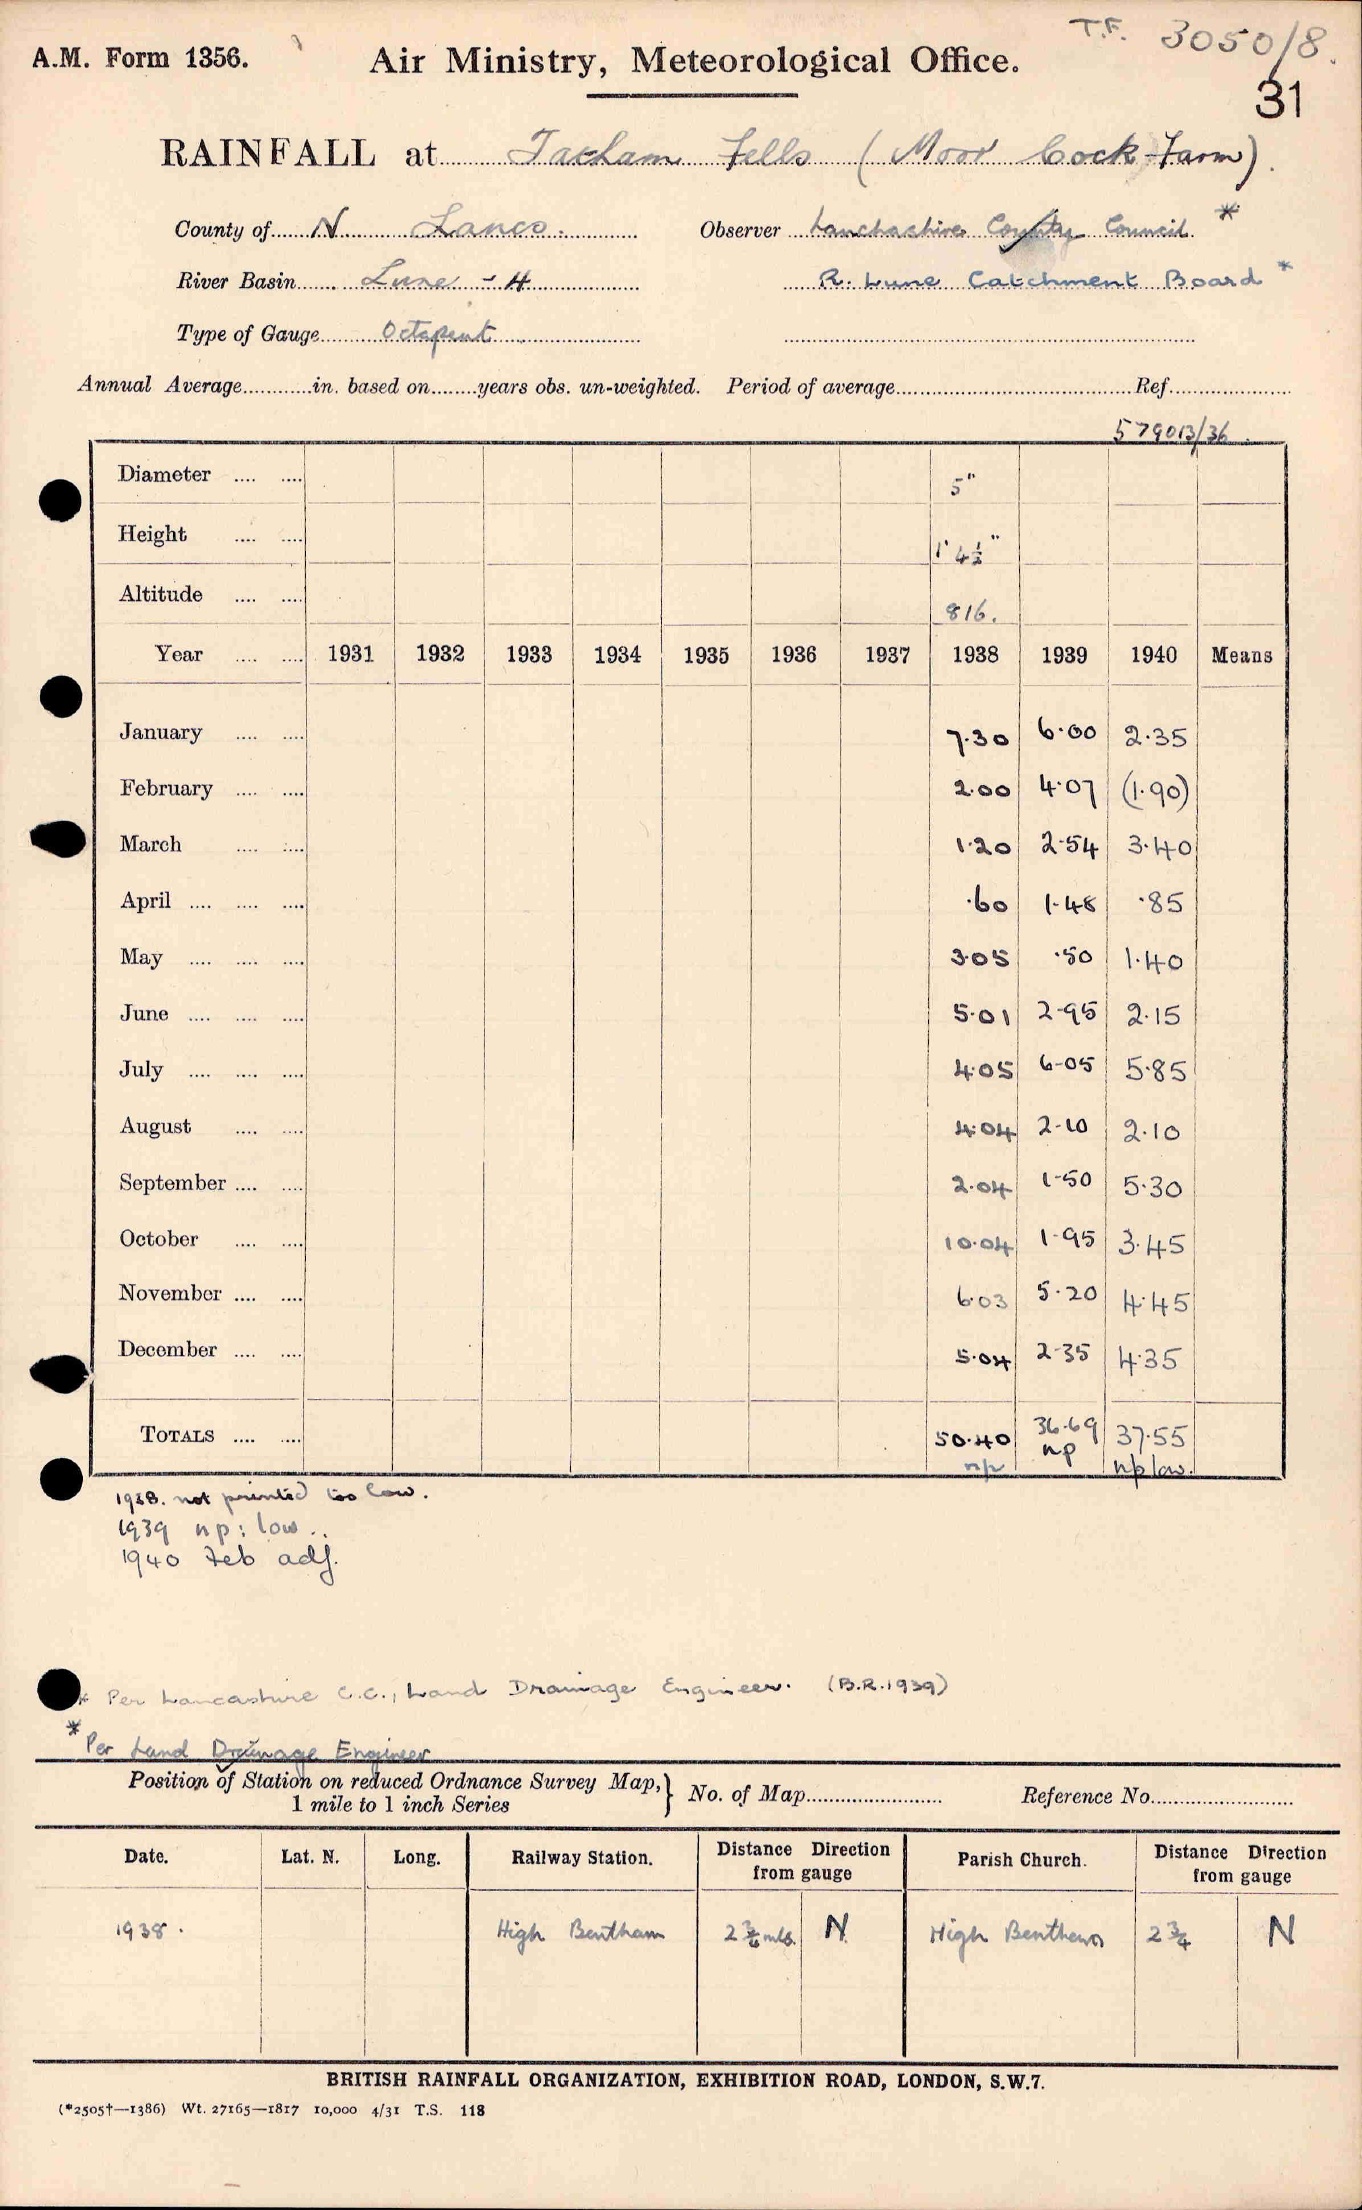 T.F. 3050/8.
A.M. Form 1356. Air Ministry, Meteorological Office.
31
RAINFALL at Tatham Fells (Moor Cock Farm).
County of N Lancs. Observer Lanchashire County Council *
River Basin Lune - 4 R. Lune Catchment Board *
Type of Gauge Octapent
Annual Average in. based on years obs. un-weighted. Period of average Ref.
579013/36
Diameter .... .... 5"
Height .... .... 1' 4½"
Altitude .... .... 816.
Year .... .... 1931 1932 1933 1934 1935 1936 1937 1938 1939 1940 Means
January .... .... 7.30 6.00 2.35
February .... .... 2.00 4.07 (1.90)
March .... .... 1.20 2.54 3.40
April .... .... .... .60 1.48 .85
May .... .... .... 3.05 .50 1.40
June .... .... .... 5.01 2.95 2.15
July .... .... .... 4.05 6.05 5.85
August .... .... 4.04 2.10 2.10
September .... .... 2.04 1.50 5.30
October .... .... 10.04 1.95 3.45
November .... .... 6.03 5.20 4.45
December .... .... 5.04 2.35 4.35
TOTALS .... .... 50.40 36.69 37.55
np np np low.
1938. not printed too low.
1939 np: low..
1940 Feb adj.
* Per Lancashire C.C., Land Drainage Engineer. (B.R.1939)
* Per Land Drainage Engineer
Position of Station on reduced Ordnance Survey Map, } No. of Map Reference No.
1 mile to 1 inch Series
Date. Lat. N. Long. Railway Station. Distance Direction from gauge Parish Church. Distance Direction from gauge
1938. High Bentham 2 ¾ mls. N. High Bentham 2 ¾ N
BRITISH RAINFALL ORGANIZATION, EXHIBITION ROAD, LONDON, S.W.7.
(*2505†—1386) Wt. 27165—1817 10,000 4/31 T.S. 118